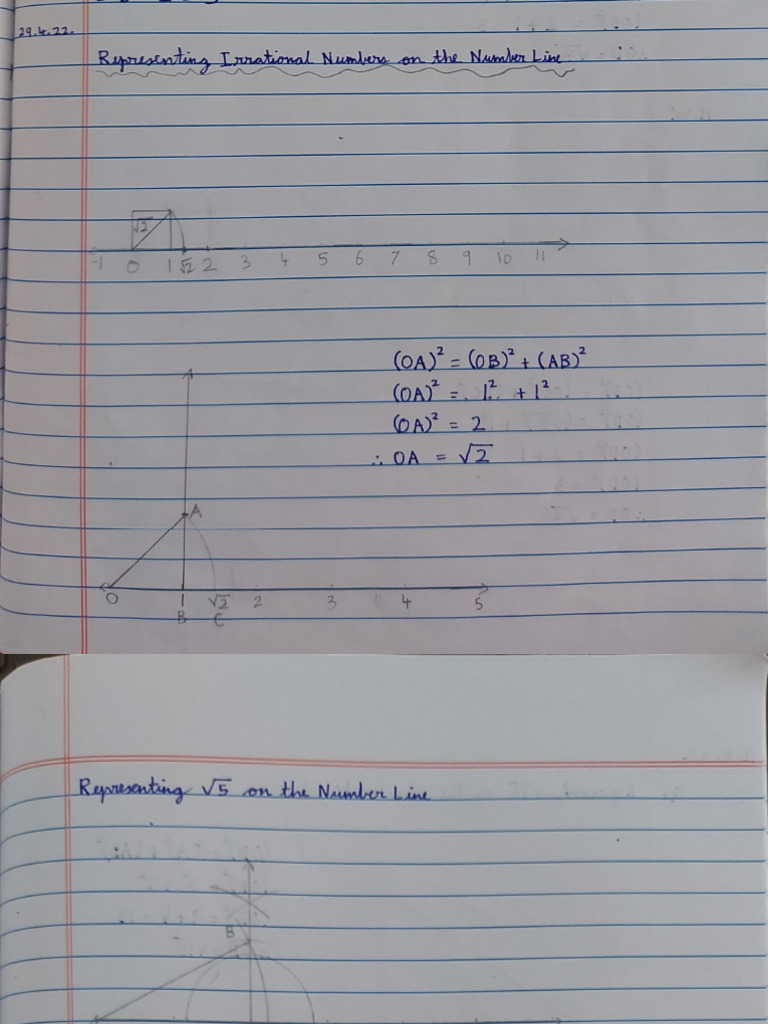 29.4.22.
Representing Irrational Numbers on the Number Line
√2
-1 0 1 √2 2 3 4 5 6 7 8 9 10 11
(OA)² = (OB)² + (AB)²
(OA)² = 1² + 1²
(OA)² = 2
∴ OA = √2
A
O 1 √2 2 3 4 5
B C
Representing √5 on the Number Line
B